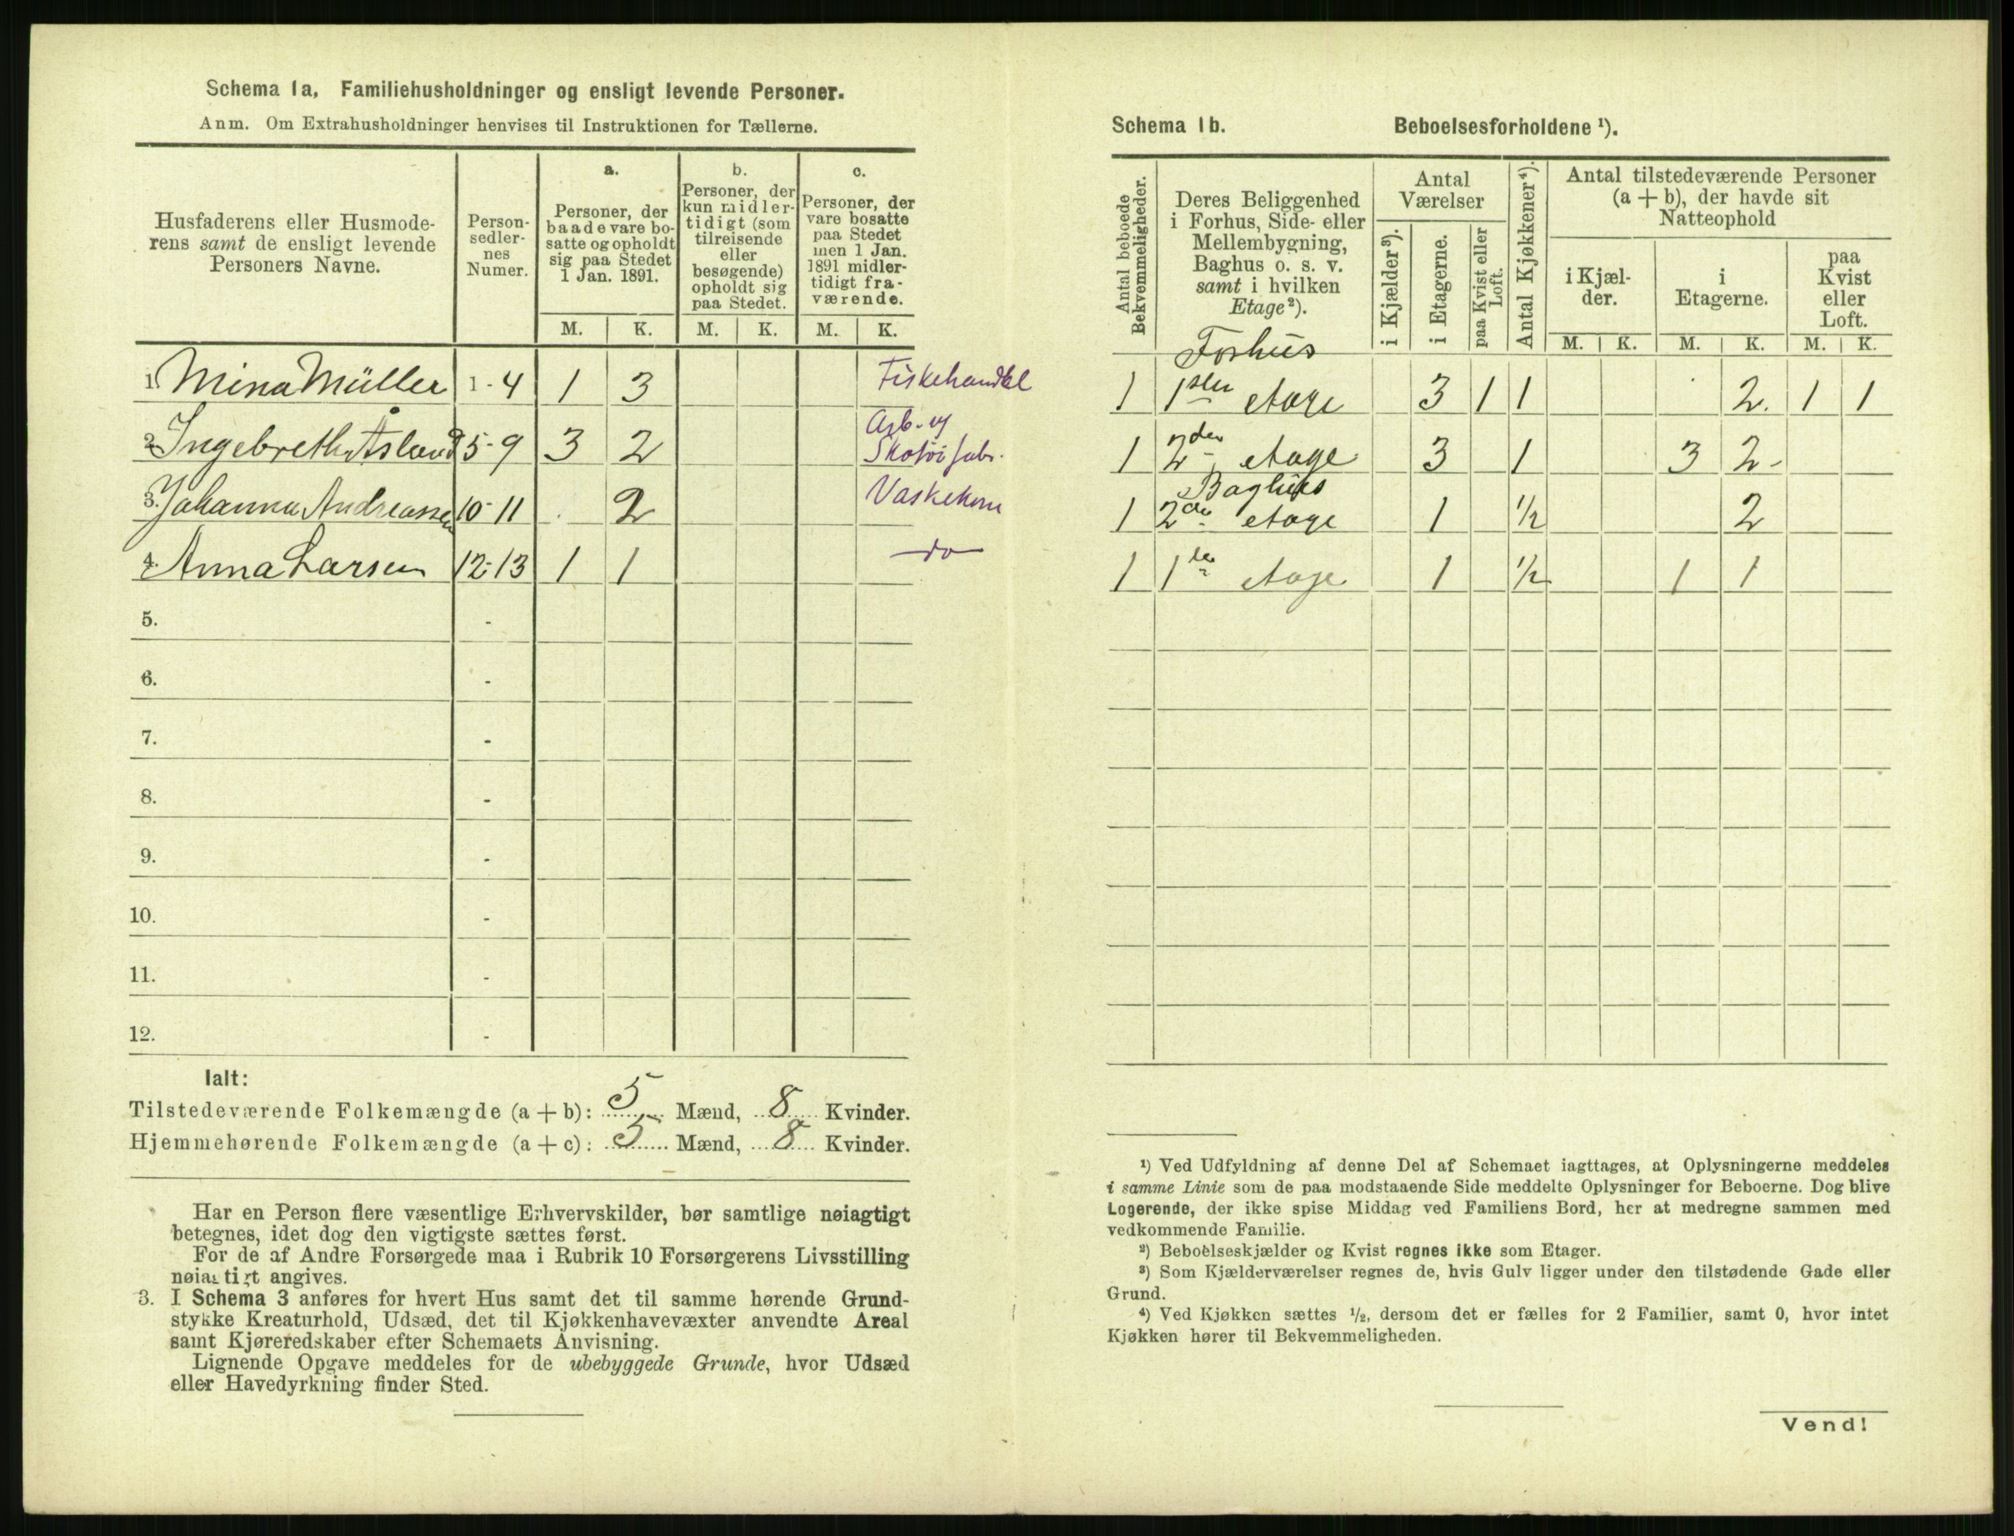 Schema 1a, Familiehusholdninger og ensligt levende Personer.
Anm. Om Extrahusholdninger henvises til Instruktionen for Tællerne.
Husfaderens eller Husmoderens samt de ensligt levende Personers Navne.
Personsedlernes Numer.
a.
Personer, der baade vare bosatte og opholdt sig paa Stedet 1 Jan. 1891.
b.
Personer, der kun midlertidigt (som tilreisende eller besøgende) opholdt sig paa Stedet.
c.
Personer, der vare bosatte paa Stedet men 1 Jan. 1891 midlertidigt fraværende.
M. K. M. K. M. K.
1. Mina Müller 1 - 4 1 3 Fiskehandel
2. Ingebreth Åsland 5 - 9 3 2 Arb. og Skotøifabr.
3. Johanna Andreassen 10 - 11 2 Vaskekone
4. Anna Larsen 12 - 13 1 1 do
5. -
6. -
7. -
8. -
9. -
10. -
11. -
12. -
Ialt:
Tilstedeværende Folkemængde (a + b): 5 Mænd, 8 Kvinder.
Hjemmehørende Folkemængde (a + c): 5 Mænd, 8 Kvinder.
Har en Person flere væsentlige Erhvervskilder, bør samtlige nøiagtigt
betegnes, idet dog den vigtigste sættes først.
For de af Andre Forsørgede maa i Rubrik 10 Forsørgerens Livsstilling
nøiagtigt angives.
3. I Schema 3 anføres for hvert Hus samt det til samme hørende Grund-
stykke Kreaturhold, Udsæd, det til Kjøkkenhavevæxter anvendte Areal
samt Kjøreredskaber efter Schemaets Anvisning.
Lignende Opgave meddeles for de ubebyggede Grunde, hvor Udsæd
eller Havedyrkning finder Sted.
Schema 1b. Beboelsesforholdene ¹).
Antal beboede Bekvemmeligheder.
Deres Beliggenhed i Forhus, Side- eller Mellembygning, Baghus o. s. v. samt i hvilken Etage²).
Antal Værelser
i Kjælder³).
i Etagerne.
paa Kvist eller Loft.
Antal Kjøkkener⁴).
Antal tilstedeværende Personer (a + b), der havde sit Natteophold
i Kjælder.
i Etagerne.
paa Kvist eller Loft.
M. K. M. K. M. K.
Forhus
1 1ster etage 3 1 1 2. 1 1
1 2den etage 3 1 3 2
Baghus
1 2de etage 1 1/2 2
1 1ste etage 1 1/2 1 1
¹) Ved Udfyldning af denne Del af Schemaet iagttages, at Oplysningerne meddeles
i samme Linie som de paa modstaaende Side meddelte Oplysninger for Beboerne. Dog blive
Logerende, der ikke spise Middag ved Familiens Bord, her at medregne sammen med
vedkommende Familie.
²) Beboelseskjælder og Kvist regnes ikke som Etager.
³) Som Kjælderværelser regnes de, hvis Gulv ligger under den tilstødende Gade eller
Grund.
⁴) Ved Kjøkken sættes ½, dersom det er fælles for 2 Familier, samt 0, hvor intet
Kjøkken hører til Bekvemmeligheden.
Vend!